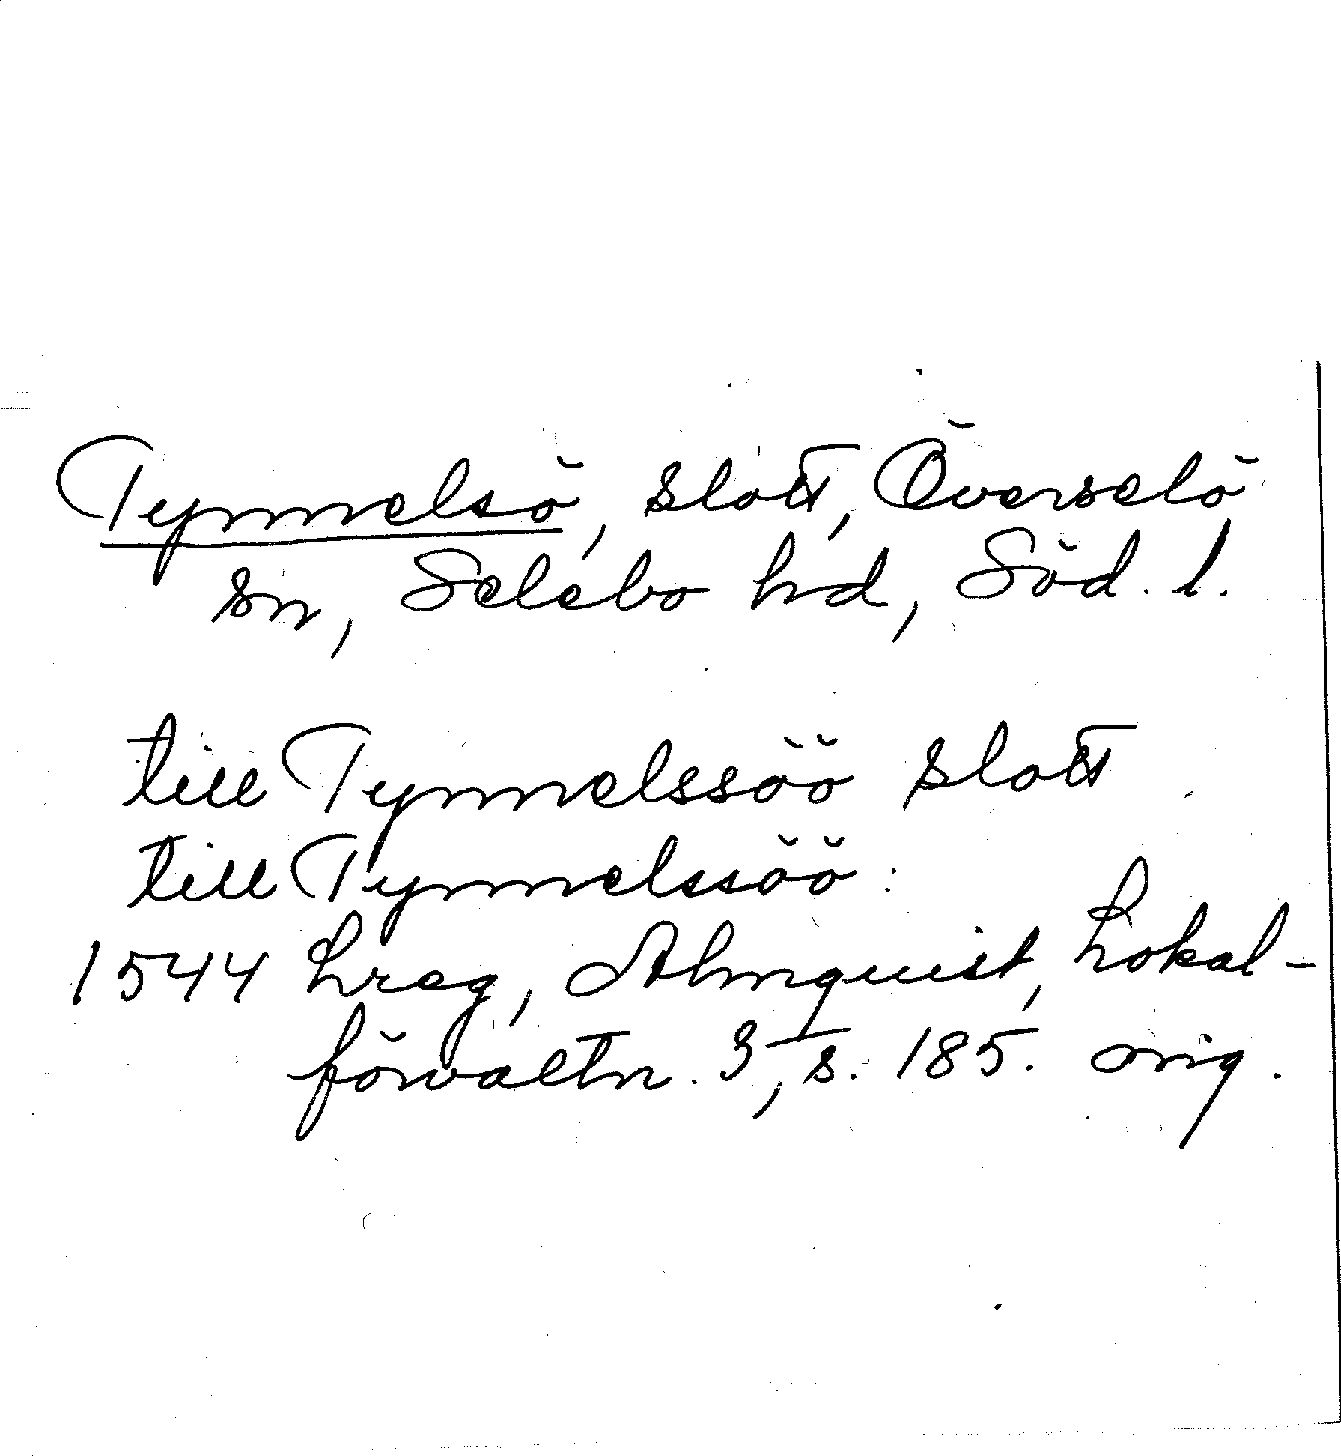 Tynnelsö, slott, Överselö
sn, Selebo hd, Söd. l.
till Tynnelssöö slott
till Tynnelssöö:
1544 Lreg, Almquist, Lokal-
förvaltn. 3, s. 185. orig.